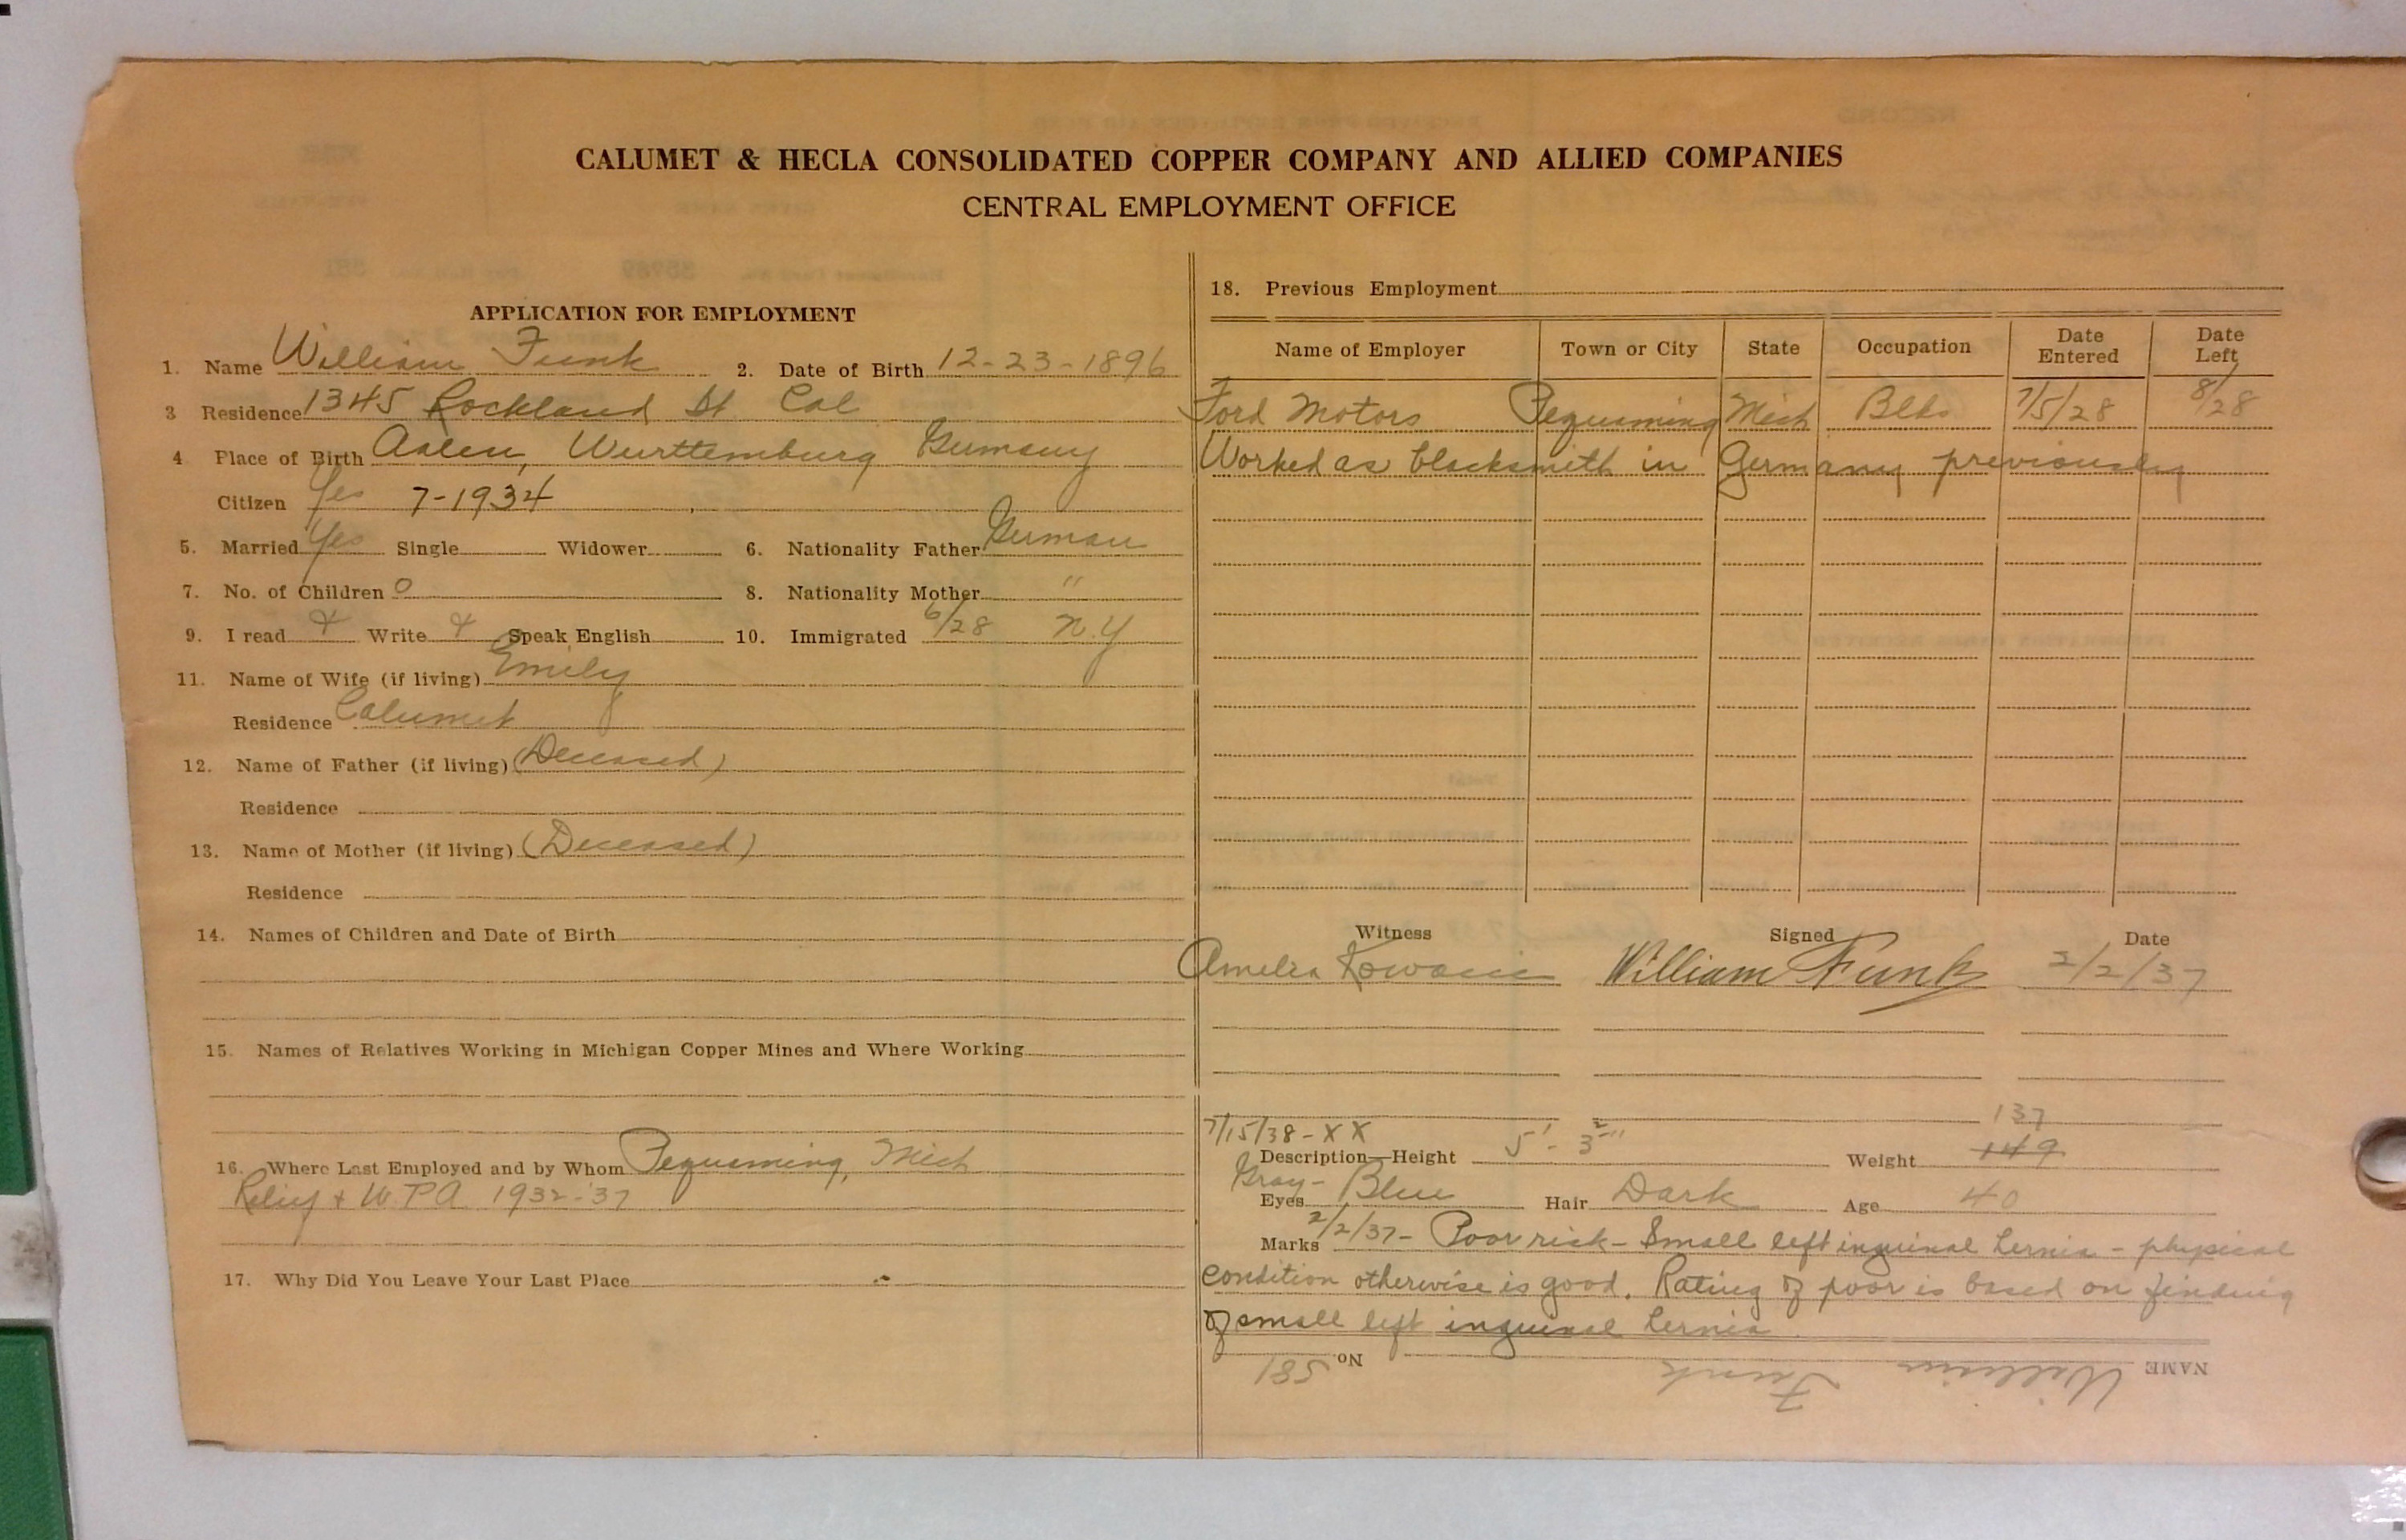 CALUMET & HECLA CONSOLIDATED COPPER COMPANY AND ALLIED COMPANIES
CENTRAL EMPLOYMENT OFFICE
APPLICATION FOR EMPLOYMENT
1. Name William Funk 2. Date of Birth 12-23-1896
3 Residence 1345 Rockland St Cal
4 Place of Birth Aalen, Wurttemburg Germany
Citizen Yes 7-1934
5. Married Yes Single Widower 6. Nationality Father German
7. No. of Children 0 8. Nationality Mother "
9. I read Write Speak English 10. Immigrated 6/28 N.Y
11. Name of Wife (if living) Emily
Residence Calumet
12. Name of Father (if living) (Deceased)
Residence
13. Name of Mother (if living) (Deceased)
Residence
14. Names of Children and Date of Birth
15. Names of Relatives Working in Michigan Copper Mines and Where Working
16. Where Last Employed and by Whom Pequaming, Mich
Relief + W.P.A. 1932-'37
17. Why Did You Leave Your Last Place
18. Previous Employment
Name of Employer Town or City State Occupation Date Entered Date Left
Ford Motors Pequaming Mich Blks 7/5/28 8/28
Worked as blacksmith in Germany previously
Witness Signed Date
Amelia William Funk 2/2/37
137
7/15/38-XX
Description—Height 5'-3 2" Weight 149
Gray-
Eyes Blue Hair Dark Age 40
Marks 2/2/37- Poor risk- Small left inguinal hernia - physical
condition otherwise is good. Rating of poor is based on finding
of small left inguinal hernia
NAME William Funk No 581